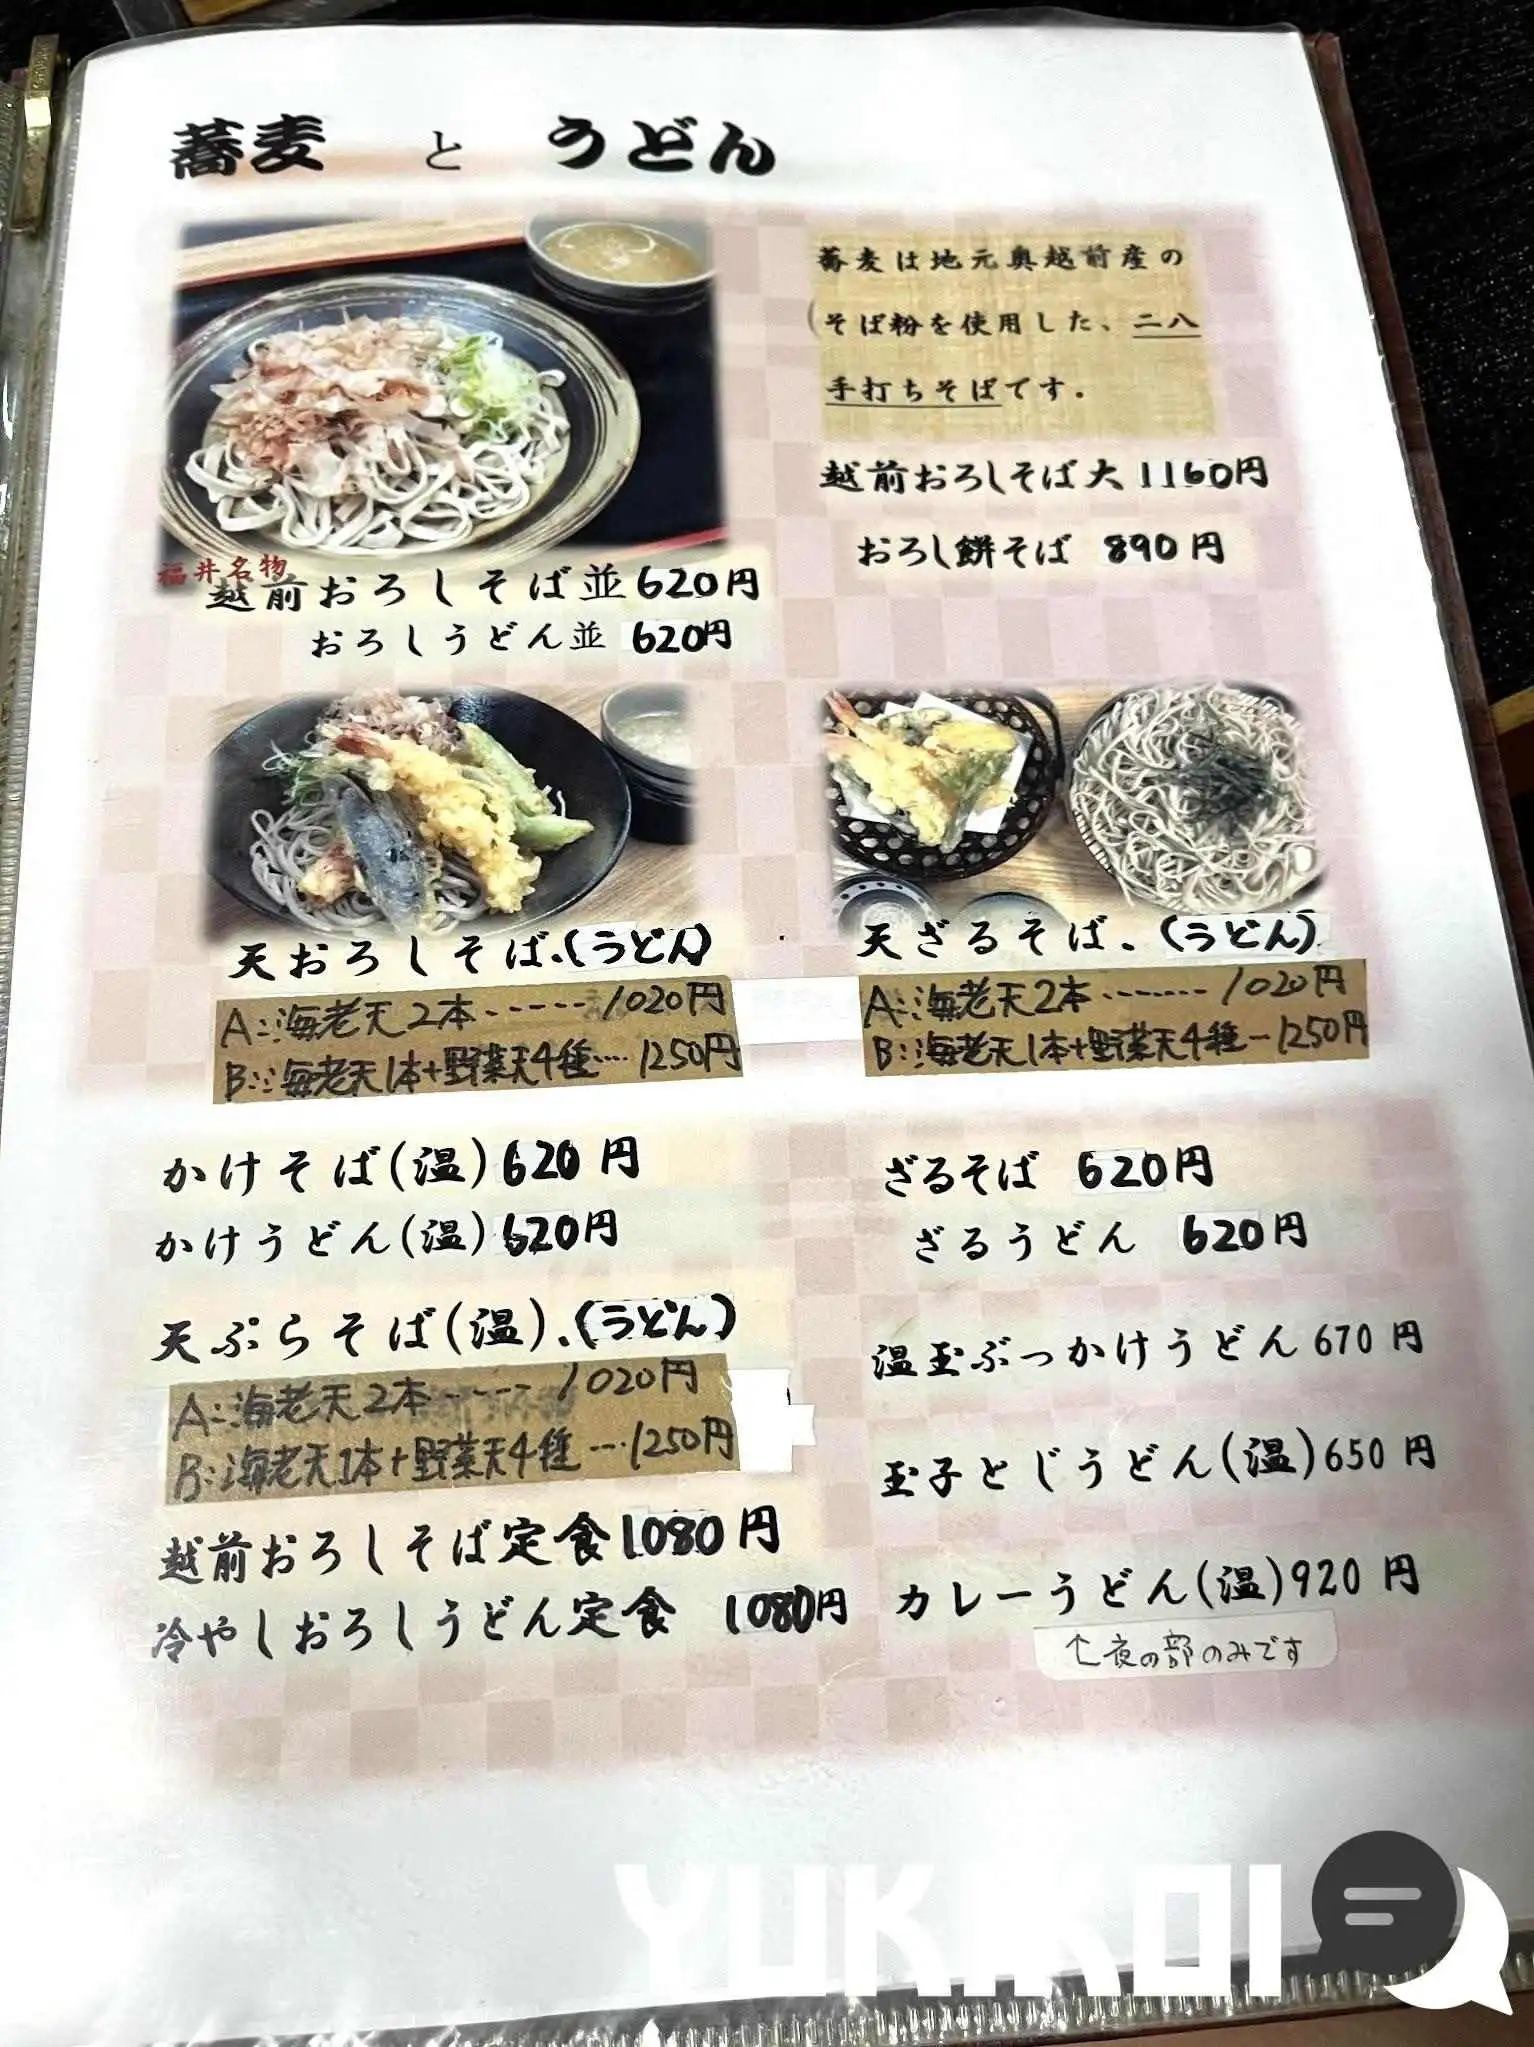 蕎麦 と うどん
蕎麦は地元奥越前産の
そば粉を使用した、二八
手打ちそばです。
越前おろしそば大 1160円
おろし餅そば 890円
福井名物
越前おろしそば並 620円
おろしうどん並 620円
天おろしそば、(うどん)
A:海老天2本-----1020円
B:海老天1本+野菜天4種....1250円
天ざるそば、(うどん)
A:海老天2本-------1020円
B:海老天1本+野菜天4種--1250円
かけそば(温) 620円
かけうどん(温) 620円
天ぷらそば(温)、(うどん)
A:海老天2本-----1020円
B:海老天1本+野菜天4種---1250円
越前おろしそば定食 1080円
冷やしおろしうどん定食 1080円
ざるそば 620円
ざるうどん 620円
温玉ぶっかけうどん 670円
玉子とじうどん(温) 650円
カレーうどん(温) 920円
↑夜の部のみです
YUKKOI